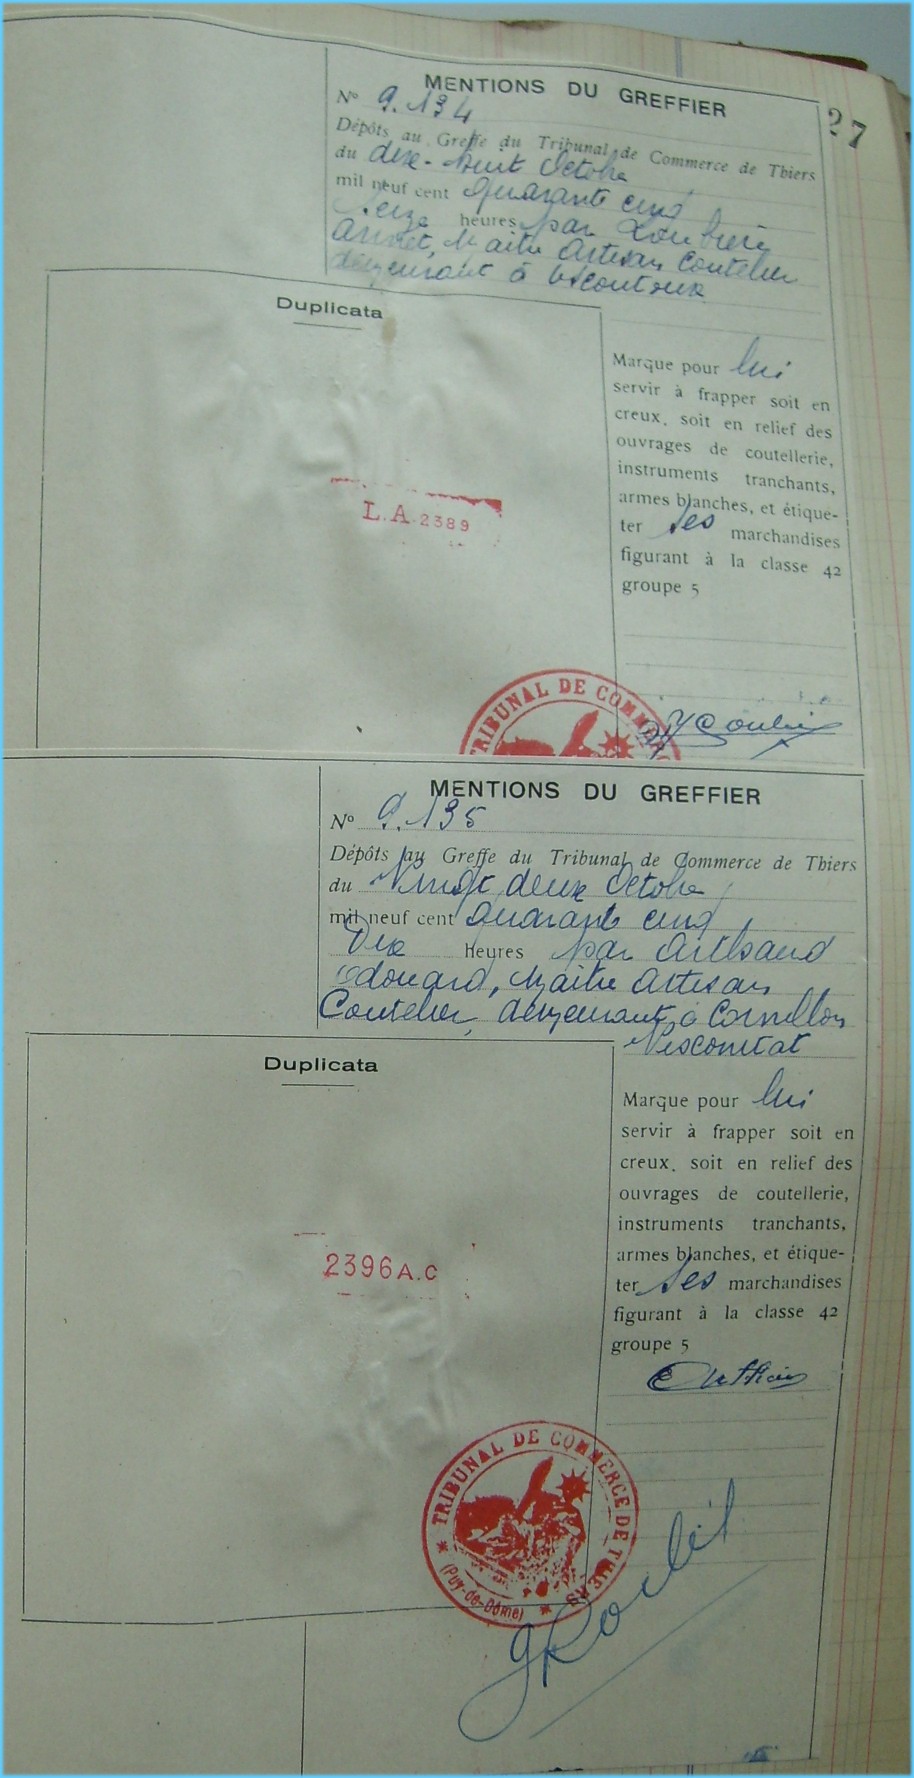 27
MENTIONS DU GREFFIER
N° 9.134
Dépôts au Greffe du Tribunal de Commerce de Thiers
du dix-huit Octobre
mil neuf cent quarante cinq
Seize heures par
Maitre Artisan Coutelier
demeurant à Escoutoux
Duplicata
L.A 2389
Marque pour lui
servir à frapper soit en
creux, soit en relief des
ouvrages de coutellerie,
instruments tranchants,
armes blanches, et étique-
ter ses marchandises
figurant à la classe 42
groupe 5
TRIBUNAL DE COMMERC
MENTIONS DU GREFFIER
N° 9.135
Dépôts au Greffe du Tribunal de Commerce de Thiers
du Vingt deux Octobre
mil neuf cent quarante cinq
Dix Heures par
Edouard, Maitre Artisan
Coutelier, demeurant à Cornillon
Viscomtat
Duplicata
2396 A.C
Marque pour lui
servir à frapper soit en
creux, soit en relief des
ouvrages de coutellerie,
instruments tranchants,
armes blanches, et étique-
ter ses marchandises
figurant à la classe 42
groupe 5
TRIBUNAL DE COMMERCE DE THIERS
(Puy-de-Dôme)